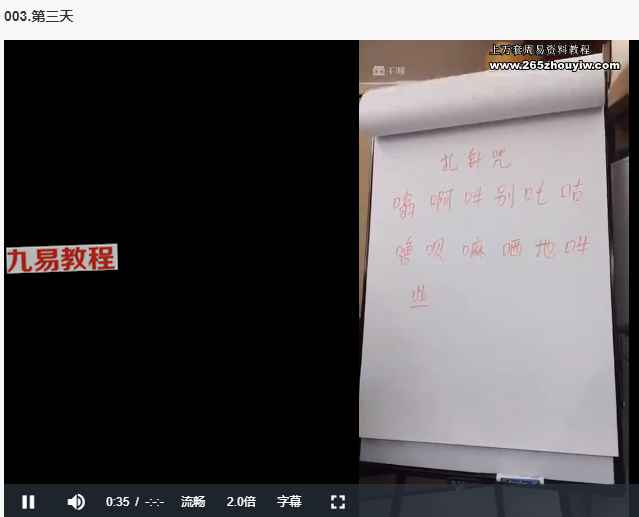 003.第三天
上万套周易资料教程
www.265zhouyiw.com
九易教程
嗡 啊 吽 别 吐 咕
噜 呗 嘛 哂 地 吽
0:35 / -:-:- 流畅 2.0倍 字幕